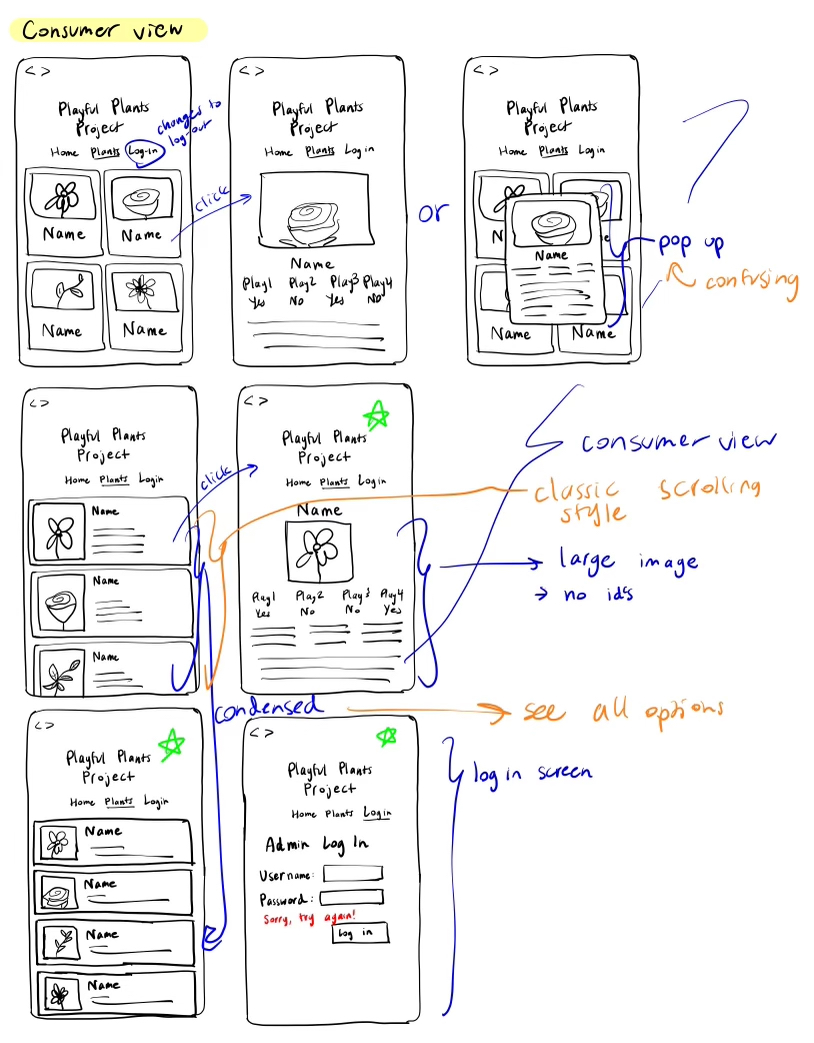 Consumer view
< >
Playful Plants
Project
Home Plants Log-in
changes to
log-out
Name
Name
Name
Name
click
< >
Playful Plants
Project
Home Plants Log in
Name
Play1 Play2 Play3 Play4
Yes No Yes No
or
< >
Playful Plants
Project
Home Plants Log in
N
e
Name
Name
Name
pop up
confusing
< >
Playful Plants
Project
Home Plants Login
Name
Name
Name
click
< >
Playful Plants
Project
Home Plants Login
Name
Play1 Play2 Play3 Play4
Yes No No Yes
consumer view
classic scrolling
style
→ large image
→ no ids
condensed
→ see all options
< >
Playful Plants
Project
Home Plants Login
Name
Name
Name
Name
< >
Playful Plants
Project
Home Plants Login
Admin Log In
Username:
Password:
Sorry, try again!
Log in
log in screen